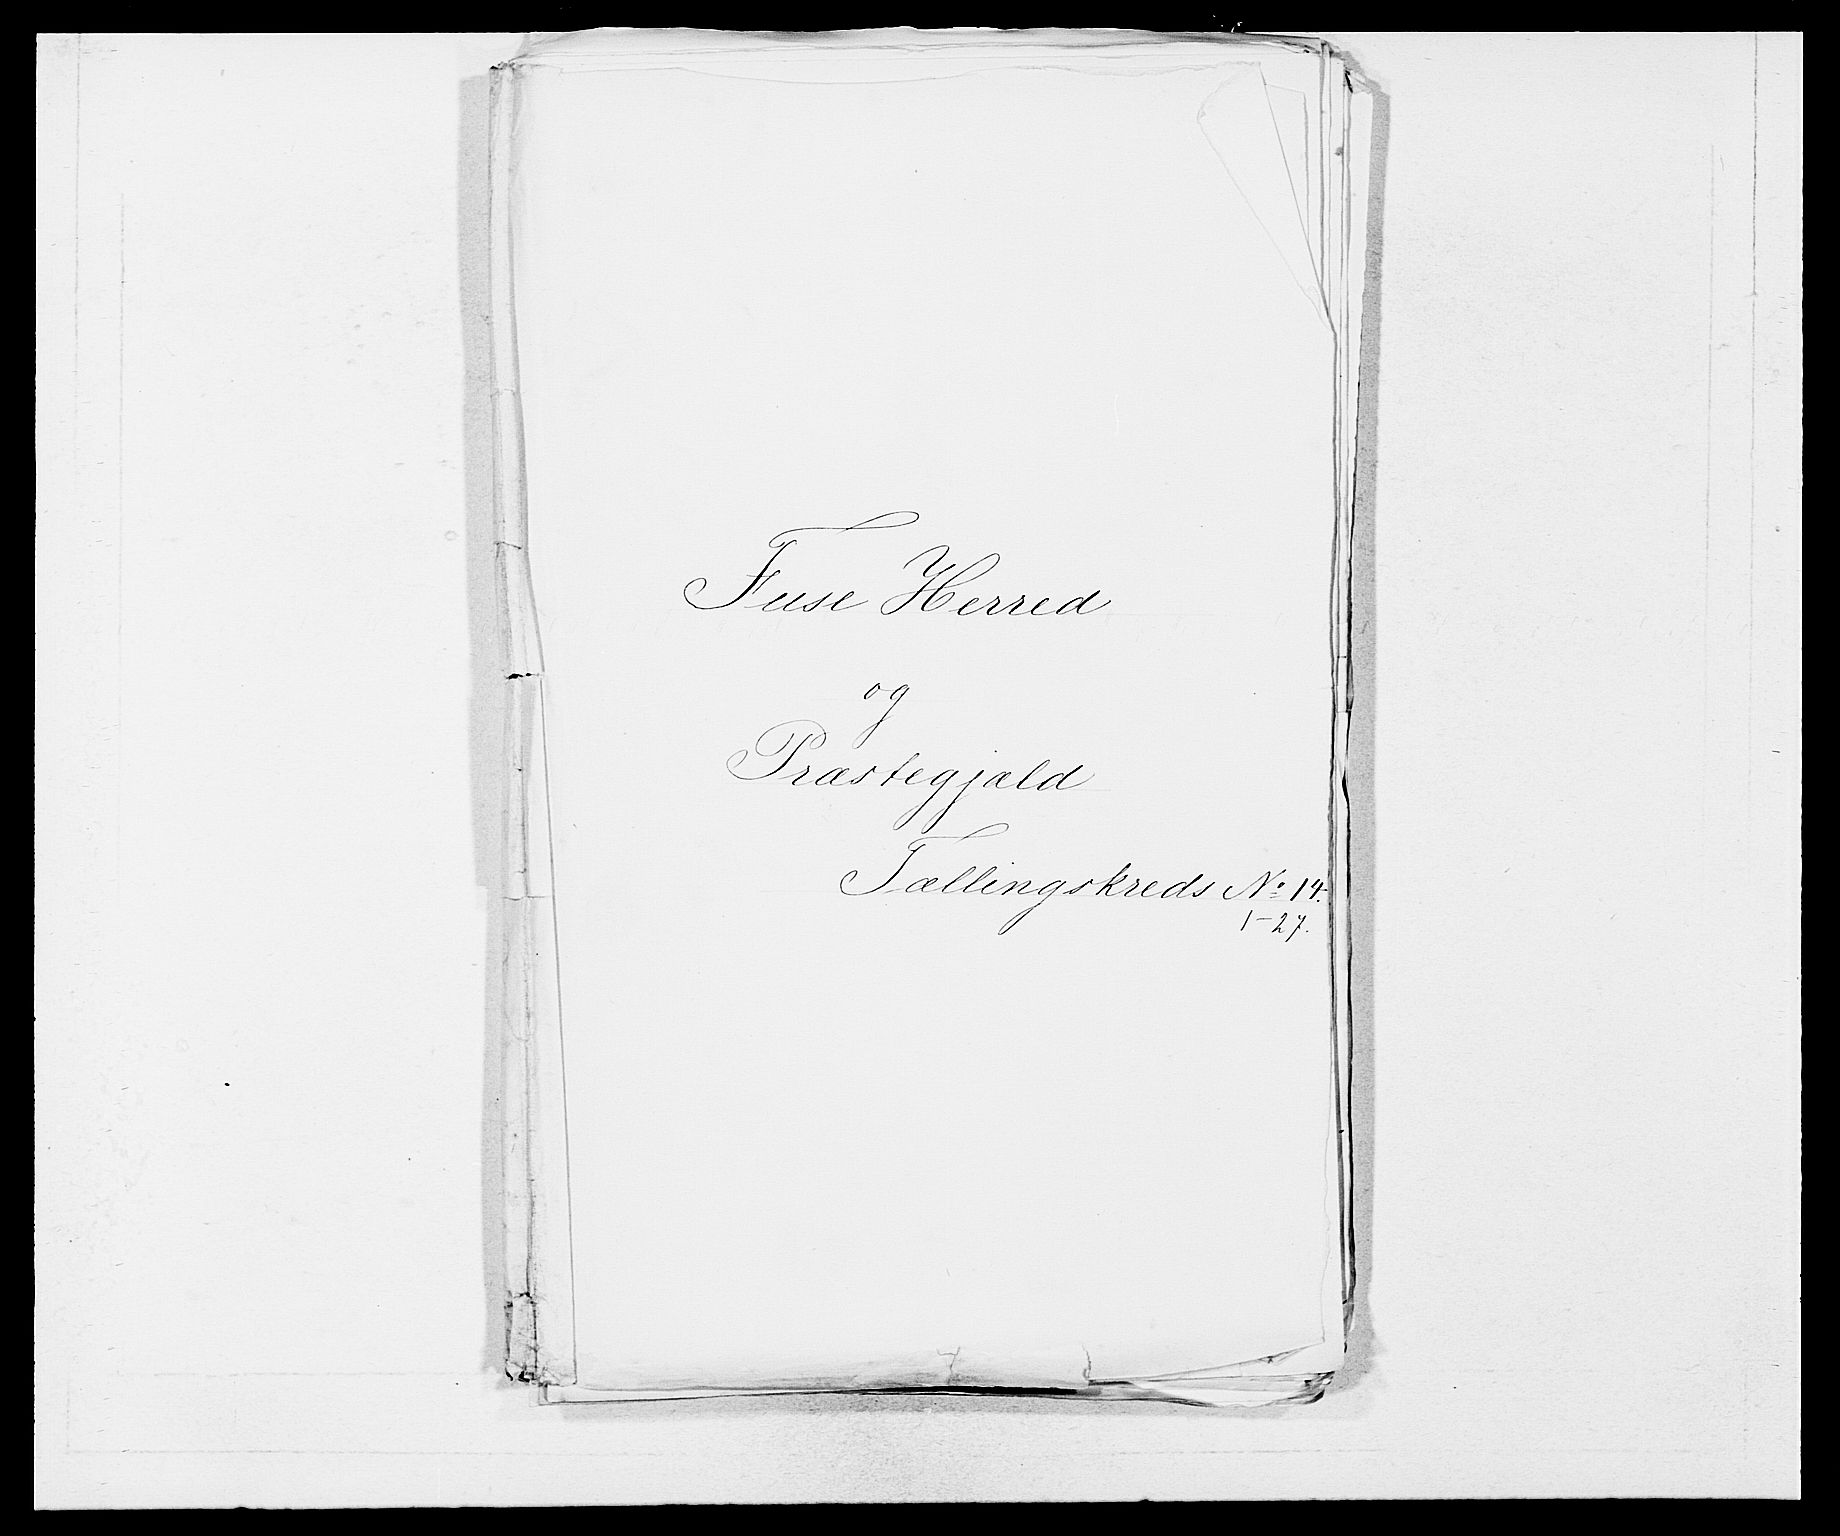 Fuse Herred
og
Præstegjæld
Tællingskreds No 14.
1-27.